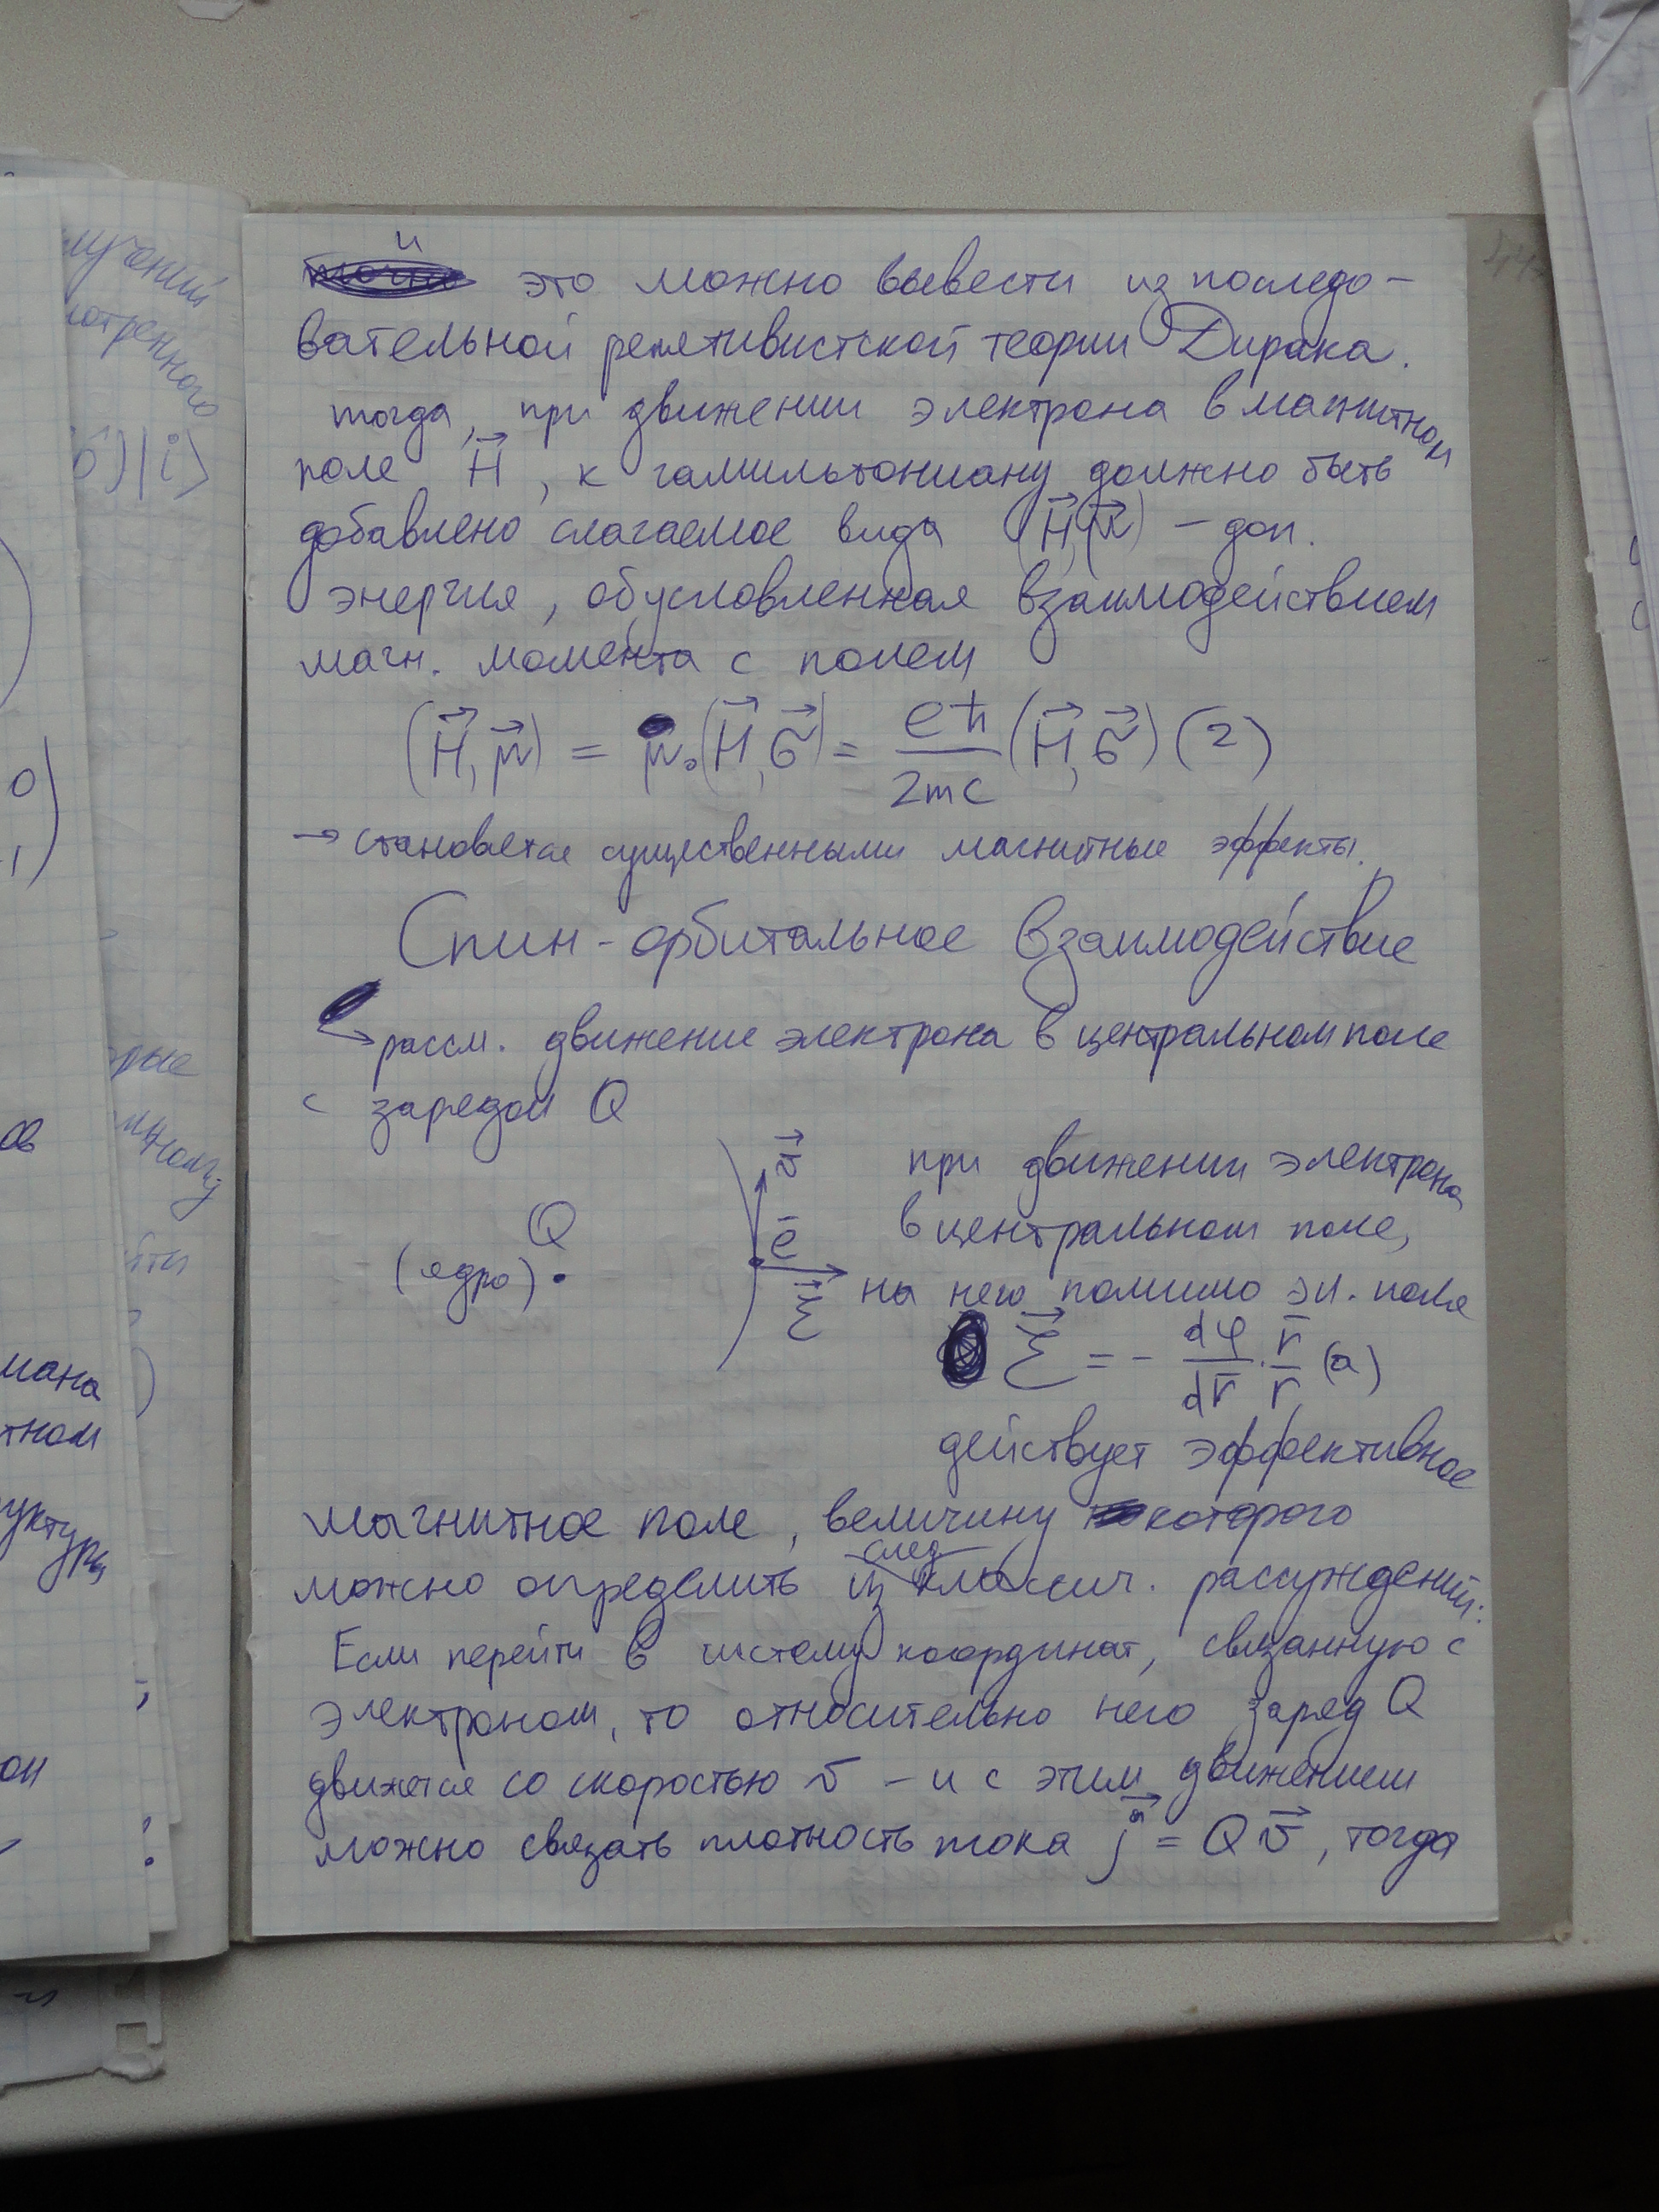 и это можно вывести из последо-
вательной релятивистской теории Дирака.
тогда, при движении электрона в магнитном
поле H⃗, к гамильтониану должно быть
добавлено слагаемое вида (H⃗,μ⃗) – доп.
энергия, обусловленная взаимодействием
магн. момента с полем
(H⃗,μ⃗) = μ₀(H⃗,σ⃗) = eħ/2mc (H⃗,σ⃗) (2)
→ становятся существенными магнитные эффекты.
Спин-орбитальное взаимодействие
→ рассм. движение электрона в центральном поле
с зарядом Q
v⃗
при движении электрона
Q
e⁻
в центральном поле,
(ядро)
ℰ⃗
на него помимо эл. поля
ℰ⃗ = - dφ/dr · r̄/r (a)
действует эффективное
магнитное поле, величину которого
можно определить из след классич. рассуждений:
Если перейти в систему координат, связанную с
электроном, то относительно него заряд Q
движется со скоростью v – и с этим движением
можно связать плотность тока j⃗ = Qv⃗, тогда
лучений
отренного
σ)|i⟩
0
рые
ов
мана
тном
уктуры
он